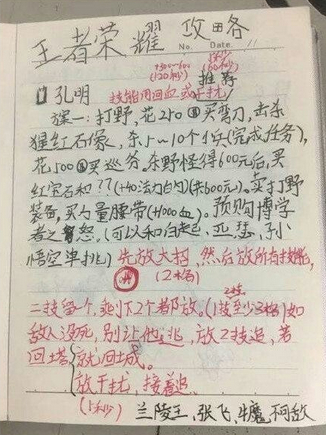 王者荣耀 攻略
No. Date.
(120秒) (60秒)
技能用回血或干扰 推荐
孔明
一:打野,花250买弯刀,击杀
猩红石像,杀5~10个小兵(完成任务),
花500买巡爷。杀野怪得600元后,买
红宝石和??(+40法力白勺)(共600元)。卖打野
装备,买力量腰带(+1000血)。预购博学
者之怒,(可以和白起、亚瑟、孙
悟空单挑) 先放大招,然后放所有技能,
(2格)
二技留一个,剩下2个都放。(1技至少3格)如
敌人没死,别让他逃,放2技追,若
回塔 就回城。
放干扰,接着追
(1秒) 兰陵王,张飞,牛魔,不可敌